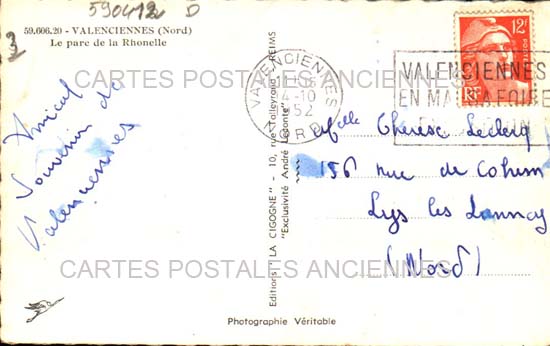 590412 D
3
59.606.20 - VALENCIENNES (Nord)
Le parc de la Rhonelle
Amical
Souvenir de
Valenciennes
Editions "LA CIGOGNE" - 10, rue Talleyrand, REIMS
"Exclusivité André Leconte"
VALENCIENNES
4-10
52
NORD
12F
RF
VALENCIENNES
EN MAI SA FOIRE
Melle Thérèse Leclerq
156 rue de
Lys les Lannoy
(Nord)
CARTES POSTALES ANCIENNES
CARTES POSTALES ANCIENNES
Photographie Véritable